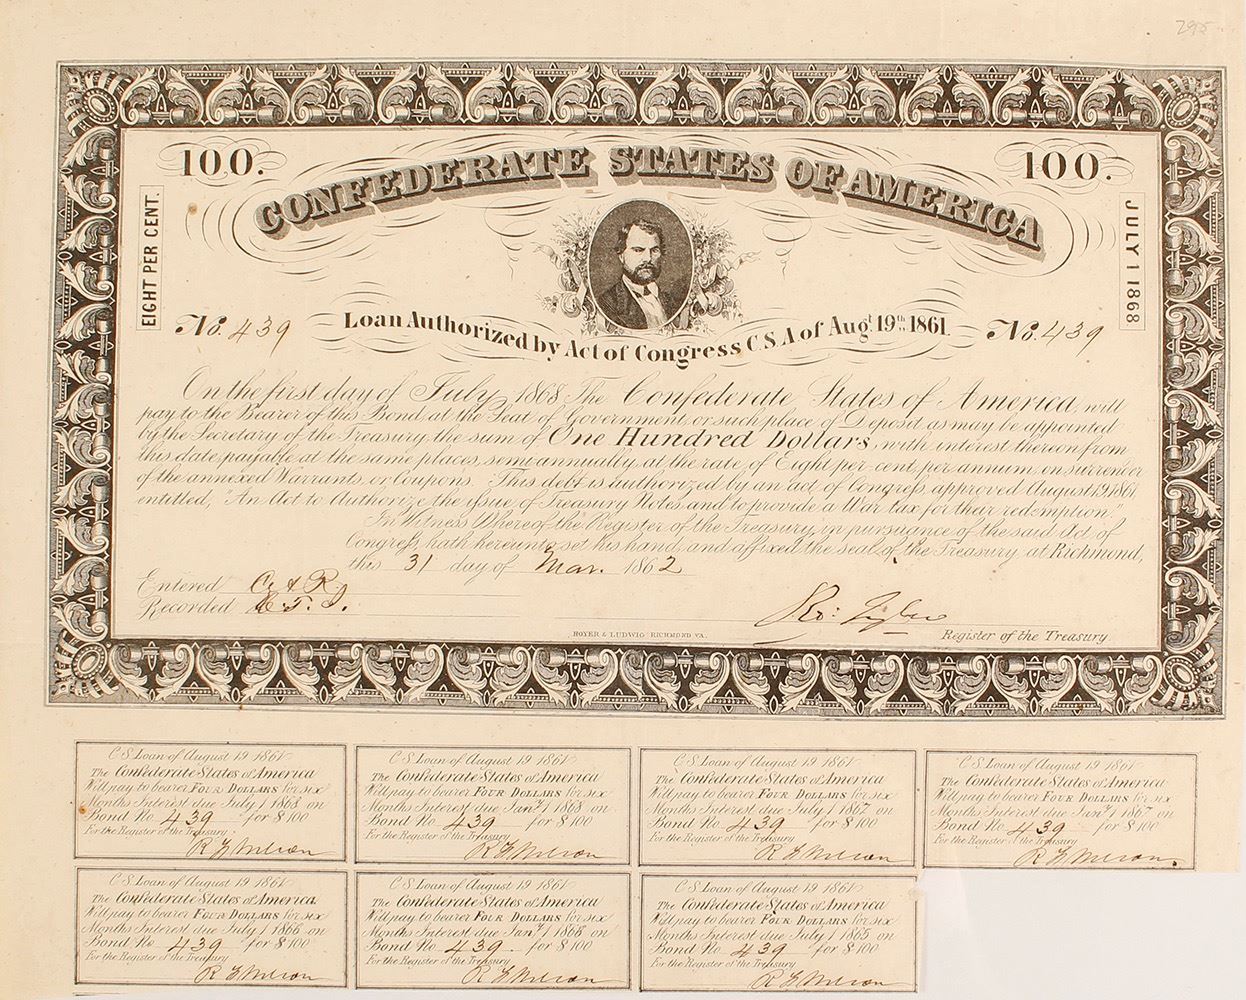 295
100.
CONFEDERATE STATES OF AMERICA
100.
EIGHT PER CENT.
JULY 1 1868
No. 439
Loan Authorized by Act of Congress C.S.A of Augt. 19th. 1861.
No. 439
On the first day of July 1868 The Confederate States of America, will
pay to the Bearer of this Bond, at the Seat of Government, or such place of Deposit as may be appointed
by the Secretary of the Treasury the sum of One Hundred Dollars, with interest thereon from
this date, payable at the same places, semi-annually, at the rate of Eight per cent, per annum, on surrender
of the annexed Warrants, or Coupons. This debt is authorized by an act of Congress, approved August 19, 1861,
entitled, "An Act to Authorize the issue of Treasury Notes and to provide a War tax for their redemption."
In Witness Whereof the Register of the Treasury, in pursuance of the said Act of
Congress, hath hereunto set his hand, and affixed the seal of the Treasury at Richmond,
this 31 day of Mar. 1862
Entered C. & R.
Recorded E. T. J.
Ro: Tyler
HOYER & LUDWIG RICHMOND VA.
Register of the Treasury
C.S. Loan of August 19 1861
The Confederate States of America
Will pay to bearer FOUR DOLLARS for six
Months Interest due July 1 1868 on
Bond No 439 for $100
For the Register of the Treasury
C.S. Loan of August 19 1861
The Confederate States of America
Will pay to bearer FOUR DOLLARS for six
Months Interest due Jany 1 1868 on
Bond No 439 for $100
For the Register of the Treasury
C.S. Loan of August 19 1861
The Confederate States of America
Will pay to bearer FOUR DOLLARS for six
Months Interest due July 1 1867 on
Bond No 439 for $100
For the Register of the Treasury
C.S. Loan of August 19 1861
The Confederate States of America
Will pay to bearer FOUR DOLLARS for six
Months Interest due Jany 1 1867 on
Bond No 439 for $100
For the Register of the Treasury
C.S. Loan of August 19 1861
The Confederate States of America
Will pay to bearer FOUR DOLLARS for six
Months Interest due July 1 1866 on
Bond No 439 for $100
For the Register of the Treasury
C.S. Loan of August 19 1861
The Confederate States of America
Will pay to bearer FOUR DOLLARS for six
Months Interest due Jany 1 on
Bond No 439 for $100
For the Register of the Treasury
C.S. Loan of August 19 1861
The Confederate States of America
Will pay to bearer FOUR DOLLARS for six
Months Interest due July 1 1865 on
Bond No 439 for $100
For the Register of the Treasury